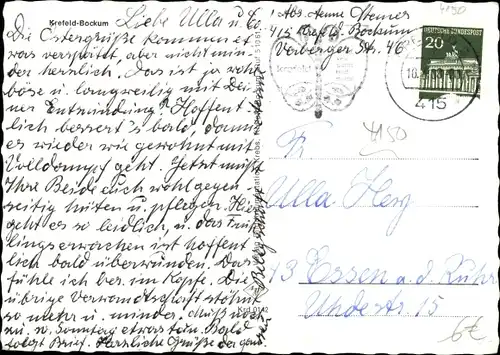 Krefeld-Bockum
Liebe Ulla u. Co.
Die Ostergrüße kommen et-
was verspätet, aber nicht min-
der herzlich. Das ist ja wohl
böse u. langweilig mit Dei-
ner Entzündung? Hoffent-
lich bessert's bald, damit
es wieder wie gewohnt mit
Volldampf geht. Jetzt müßt
Ihr Beide Euch wohl gegen-
seitig hüten u. pflegen. Hier
geht es so leidlich, u. das Früh-
lingserwachen ist hoffent
lich bald überwunden. Das
fühle ich bes. im Kopfe. Die
übrige Verwandtschaft stöhnt
so mehr u. minder. Muß noch
zu u. Sonntag etwas tun. Bald
folgt Brief. Herzliche Grüße der ganzen
Abs. Aenne Steiner
415 Krefeld, Bockum
Verberger Str. 46
DEUTSCHE BUNDESPOST
20
415
4150
4150
Fr.
Ulla Herg
43 Essen a. d. Ruhr
Uhdestr. 15
6€